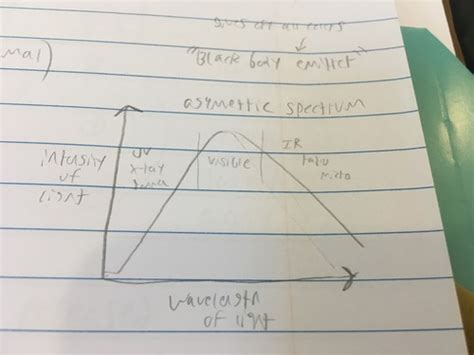 gives off all colors
mal)
"Black body emitter"
asymettric spectrum
intensity
of
light
UV
x-ray
gamma
visible
IR
radio
micro
wavelength
of light